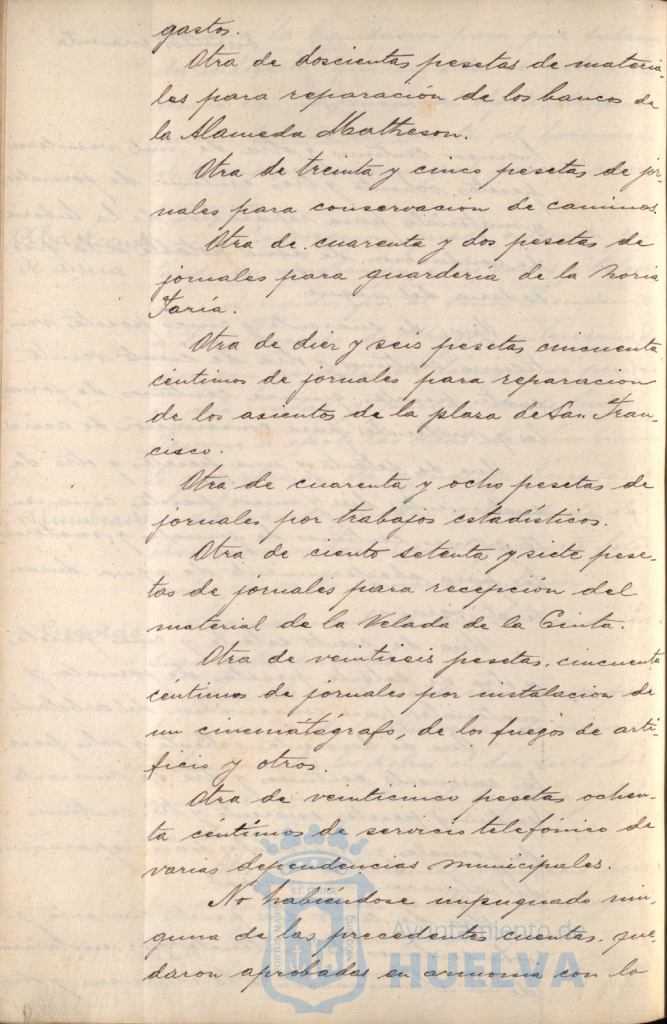 gastos.
Otra de doscientas pesetas de materia-
les para reparación de los bancos de
la Alameda Matheson.
Otra de treinta y cinco pesetas de jor-
nales para conservación de caminos.
Otra de cuarenta y dos pesetas de
jornales para guardería de la Noria
Faría.
Otra de diez y seis pesetas cincuenta
céntimos de jornales para reparacion
de los asientos de la plaza de San Fran-
cisco.
Otra de cuarenta y ocho pesetas de
jornales por trabajos estadísticos.
Otra de ciento setenta y siete pese-
tas de jornales para recepción del
material de la Velada de la Cinta.
Otra de veintiseis pesetas, cincuenta
céntimos de jornales por instalacion de
un cinematógrafo, de los fuegos de arti-
ficio y otros.
Otra de veinticinco pesetas ochen-
ta céntimos de servicio telefónico de
varias dependencias municipales.
No habiéndose impugnado nin-
guna de las precedentes cuentas, que-
daron aprobadas en armonía con lo
Ayuntamiento de
HUELVA